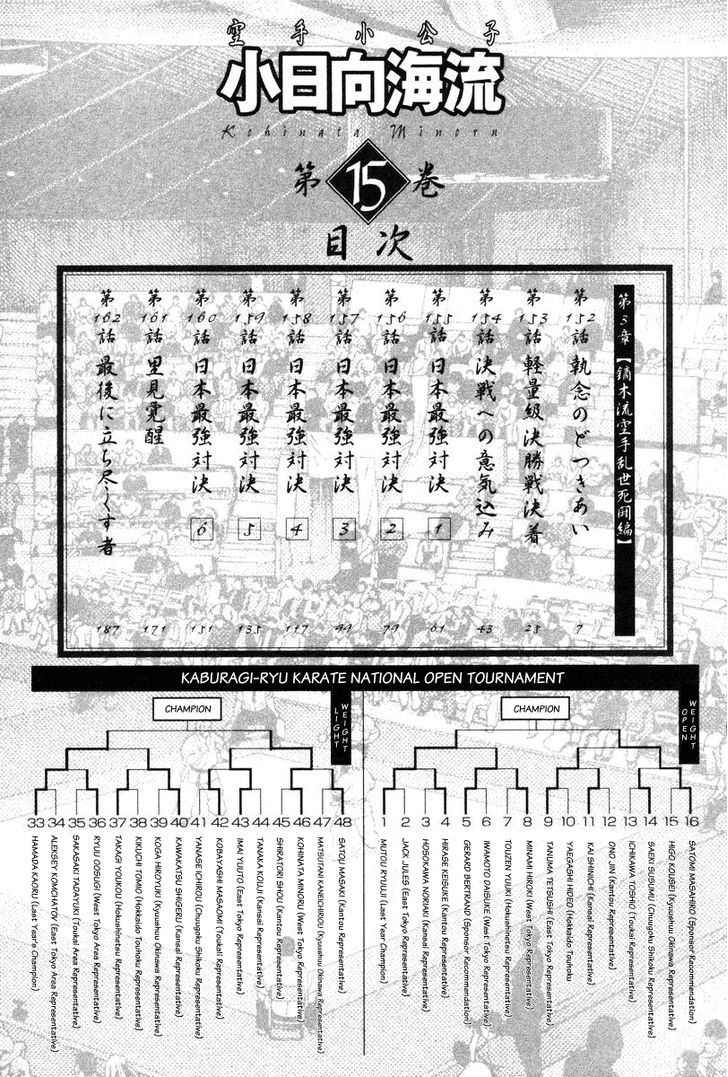 空手小公子
小日向海流
Kohinata Minoru
第15巻
目次
第3章【鏑木流空手乱世死闘編】
第152話 執念のどつきあい 7
第153話 軽量級決勝戦決着 25
第154話 決戦への意気込み 43
第155話 日本最強対決 1 61
第156話 日本最強対決 2 79
第157話 日本最強対決 3 99
第158話 日本最強対決 4 117
第159話 日本最強対決 5 135
第160話 日本最強対決 6 151
第161話 里見覚醒 171
第162話 最後に立ち尽くす者 187
KABURAGI-RYU KARATE NATIONAL OPEN TOURNAMENT
CHAMPION
LIGHT WEIGHT
33 HAMADA KAORI (Last Year's Champion)
34 ALEKSEY KOMCHATOV (East Tokyo Area Representative)
35 SAKASAKI TADAYUKI (Toukai Area Representative)
36 RYUU OOSUGI (West Tokyo Area Representative)
37 TAKAGI YOUKOU (Hokushinetsu Representative)
38 KIKUCHI TOMIO (Hokkaido Touhoku Representative)
39 KOGA HIROYUKI (Kyuushuu Okinawa Representative)
40 KAWAKATSU SHIGERU (Kansai Representative)
41 YANASE ICHIROU (Chuugoku Shikoku Representative)
42 KOBAYASHI MASAOMI (Toukaii Representative)
43 IMAI YUUTO (East Tokyo Representative)
44 TANAKA KOUJI (Kansai Representative)
45 SHIRATORI SHOU (Kantou Representative)
46 KOHINATA MINORU (West Tokyo Representative)
47 MATSUTANI KANECHIROU (Kyuushuu Okinawa Representative)
48 SATOU MASAKI (Kantou Representative)
CHAMPION
OPEN WEIGHT
1 MUTOU RYUUJI (Last Year Champion)
2 JACK JULES (East Tokyo Representative)
3 HOSOKAWA NORIAKI (Kansai Representative)
4 HIRASE KEISUKE (Kantou Representative)
5 GERARD BERTRAND (Sponsor Recommendation)
6 IWAMOTO DAISUKE (West Tokyo Representative)
7 TOUZEN YUUKI (Hokushinetsu Representative)
8 MINAMI HIROKI (West Tokyo Representative)
9 TANUMA TETSUSHI (East Tokyo Representative)
10 YAEGASHI HIDEO (Hokkaido Touhoku
11 KAI SHINICHI (Kansai Representative)
12 ONO JIN (Kantou Representative)
13 ICHIKAWA TOSHIO (Toukai Representative)
14 SAEKI SUSUMU (Chuugoku Shikoku Representative)
15 HIGO KOUSEI (Kyuushuu Okinawa Representative)
16 SATOMI MASAHIRO (Sponsor Recommendation)